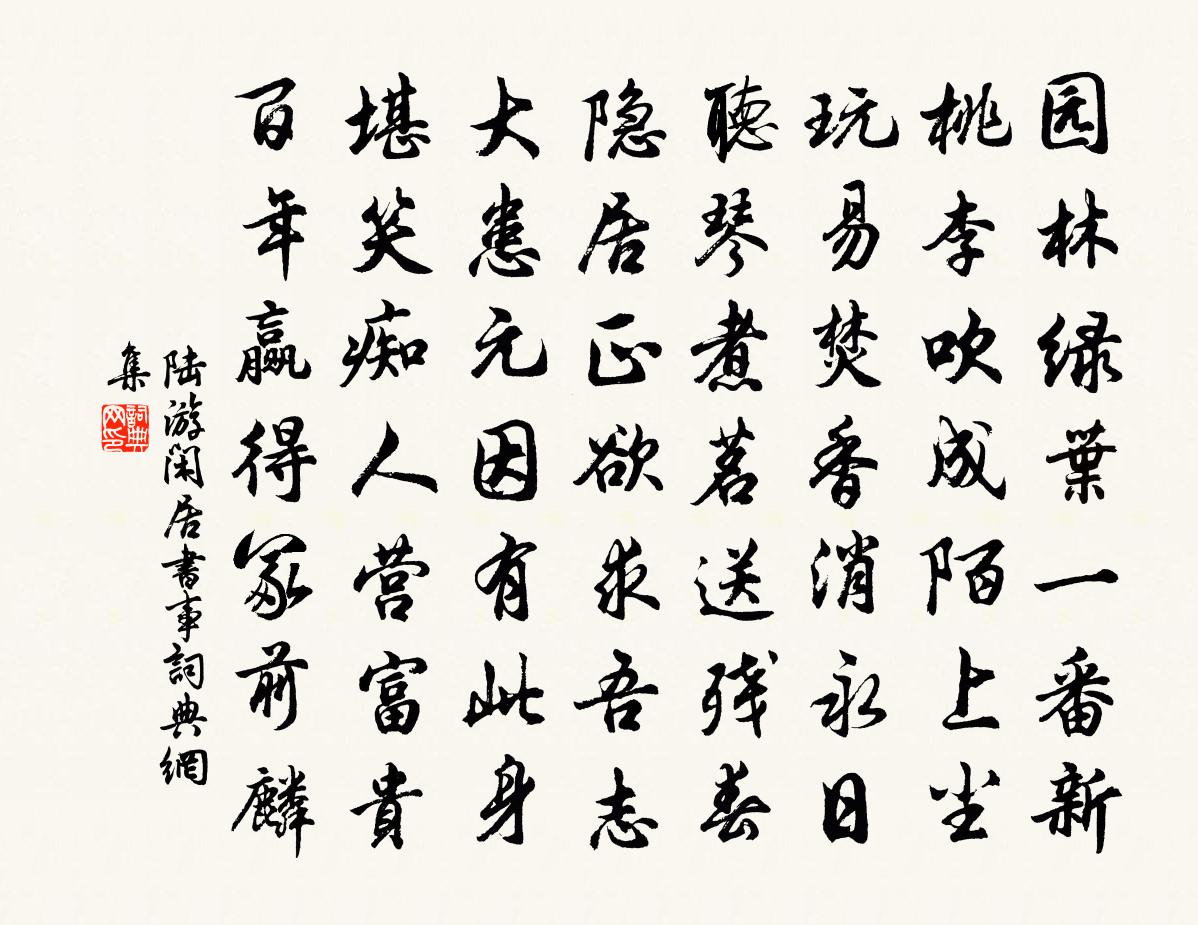 园林绿葉一番新
桃李吹成陌上尘
玩易焚香消永日
聴琴煮茗送残春
隐居正欲求吾志
大患元因有此身
堪笑痴人营富貴
百年赢得冢前麟
陆游闲居書事詞典網
集
詞典网印